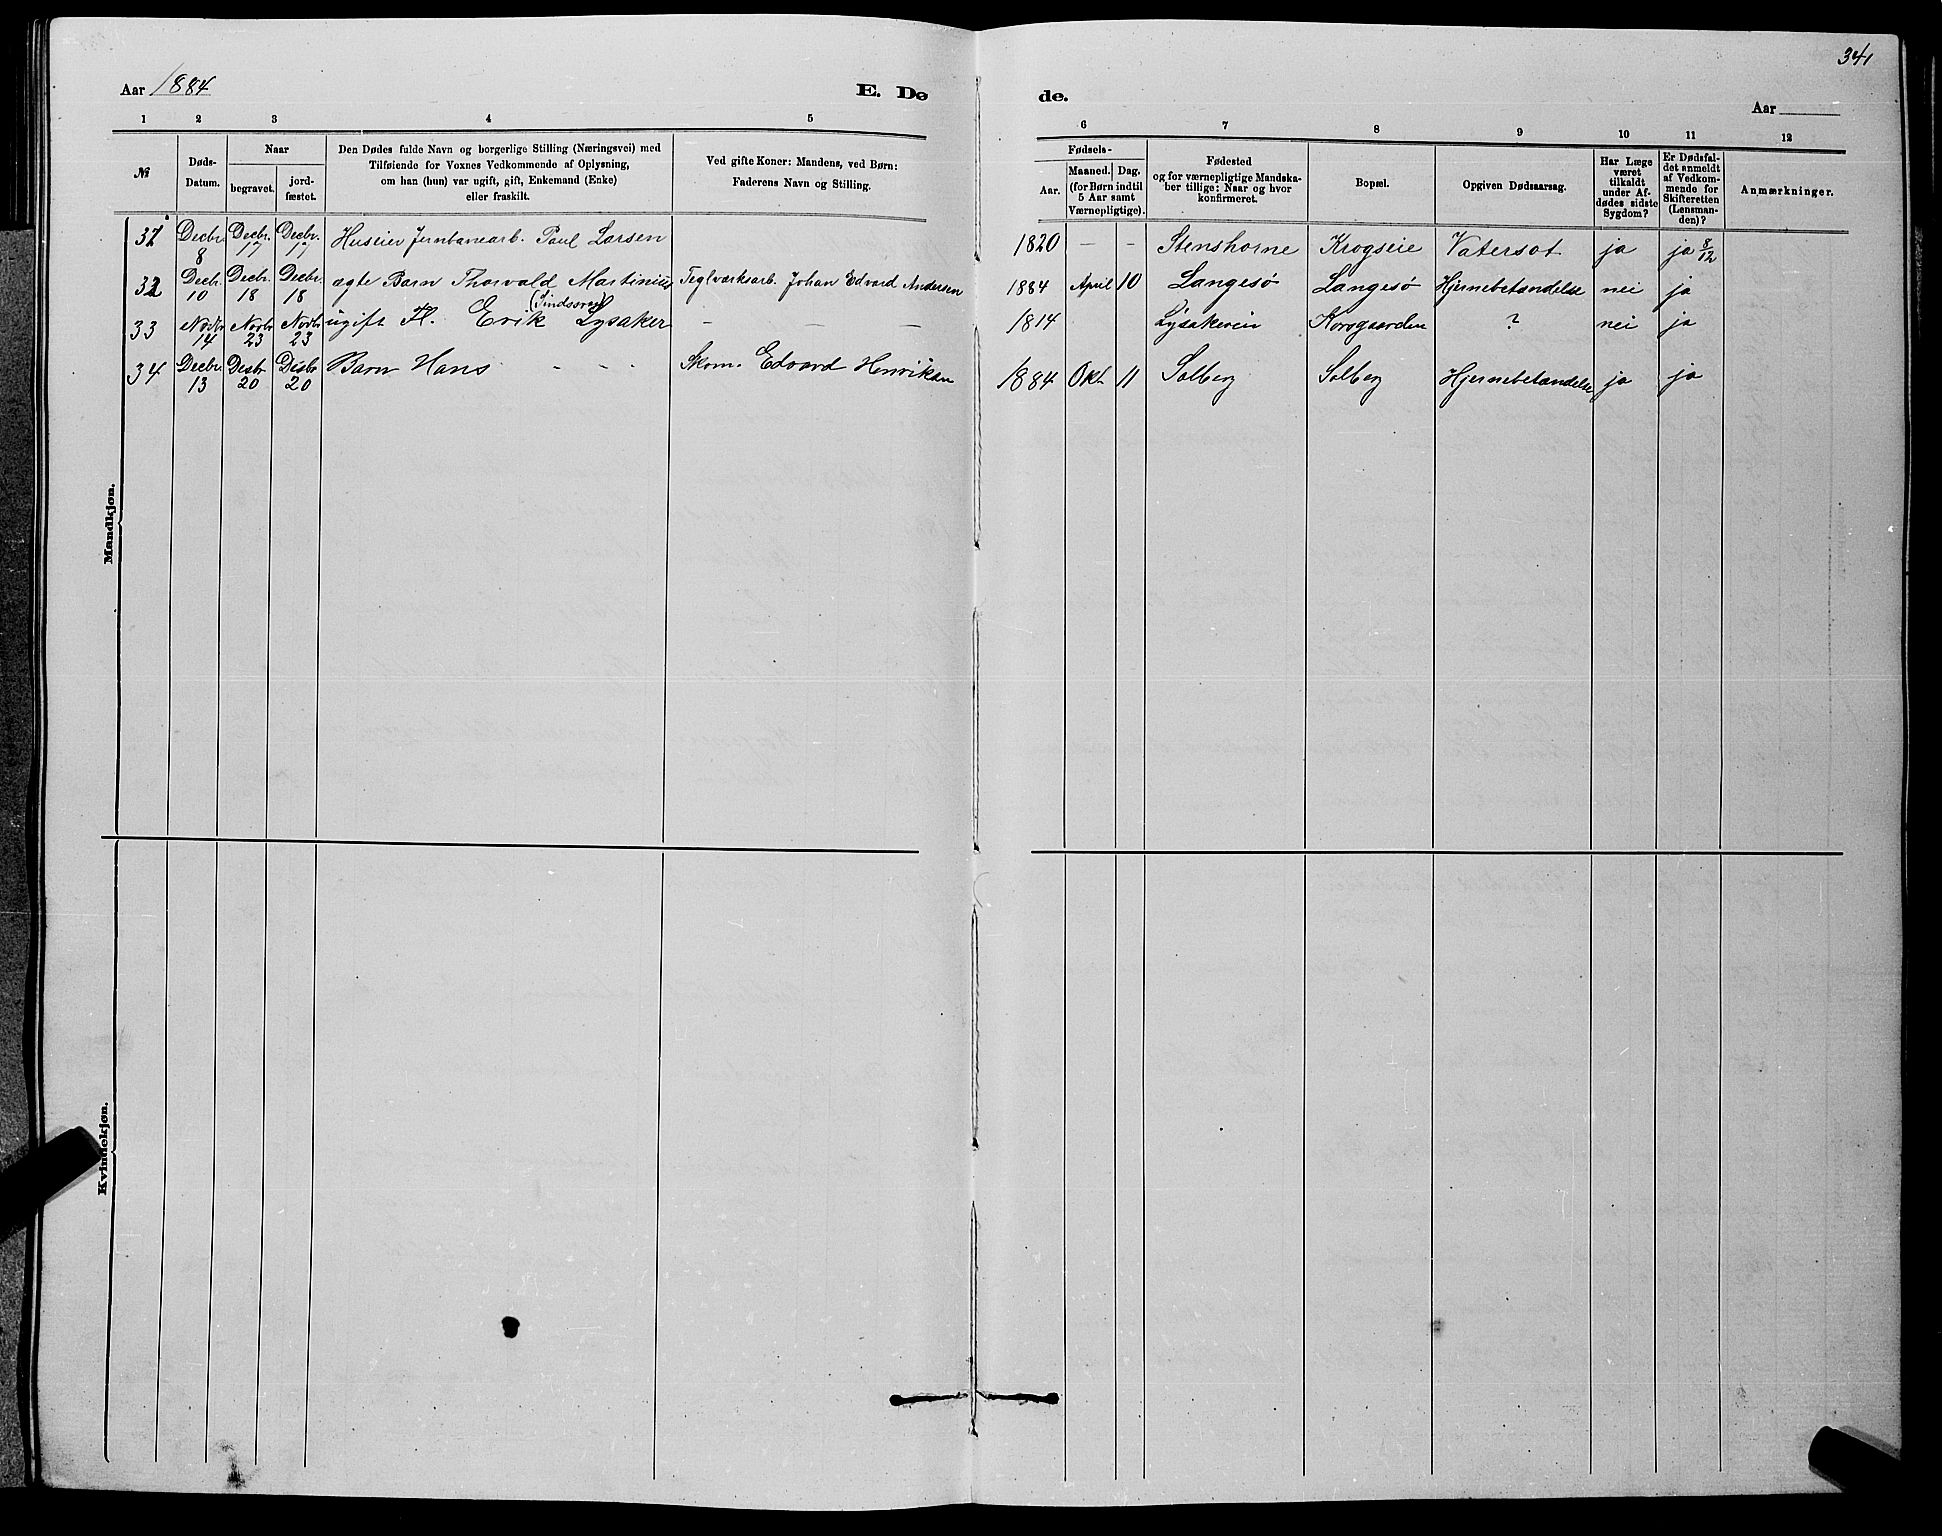 341
Aar 1884 E. Dø de. Aar
1 2 3 4 5 6 7 8 9 10 11 12
№
Døds-
Datum.
Naar
begravet.
jord-
fæstet.
Den Dødes fulde Navn og borgerlige Stilling (Næringsvei) med
Tilføiende for Voxnes Vedkommende af Oplysning,
om han (hun) var ugift, gift, Enkemand (Enke)
eller fraskilt.
Ved gifte Koner: Mandens, ved Børn:
Faderens Navn og Stilling.
Fødsels-
Aar.
Maaned. Dag.
(for Børn indtil
5 Aar samt
Værnepligtige).
Fødested
og for værnepligtige Mandska-
ber tillige: Naar og hvor
konfirmeret.
Bopæl.
Opgiven Dødsaarsag.
Har Læge
været
tilkaldt
under Af-
dødes sidste
Sygdom?
Er Dødsfal-
det anmeldt
af Vedkom-
mende for
Skifteretten
(Lensman-
den)?
Anmærkninger.
Mandkjøn.
31 Decbr. 8 Decbr. 17 Decbr. 17 Huseier Jernbanearb. Paul Larsen 1820 – – Stenshorne Krogseie Vatersot ja ja 8/12
32 Decbr. 10 Decbr. 18 Decbr. 18 ægte Barn Thorvald Martinius Teglværksarb. Johan Edvard Andersen 1884 April 10 Langesø Langesø Hjernebetændelse nei ja
33 Novbr. 14 Novbr. 23 Novbr. 23 ugift Fl. Erik (Sindssvag) Lysaker – – – 1814 Lysakereie Korsgaarden ? nei ja
34 Decbr. 13 Desbr. 20 Desbr. 20 Barn Hans - - - Skom. Edvard Henriksen 1884 Okt. 11 Solberg Solberg Hjernebetændelse ja ja
Kvindekjøn.